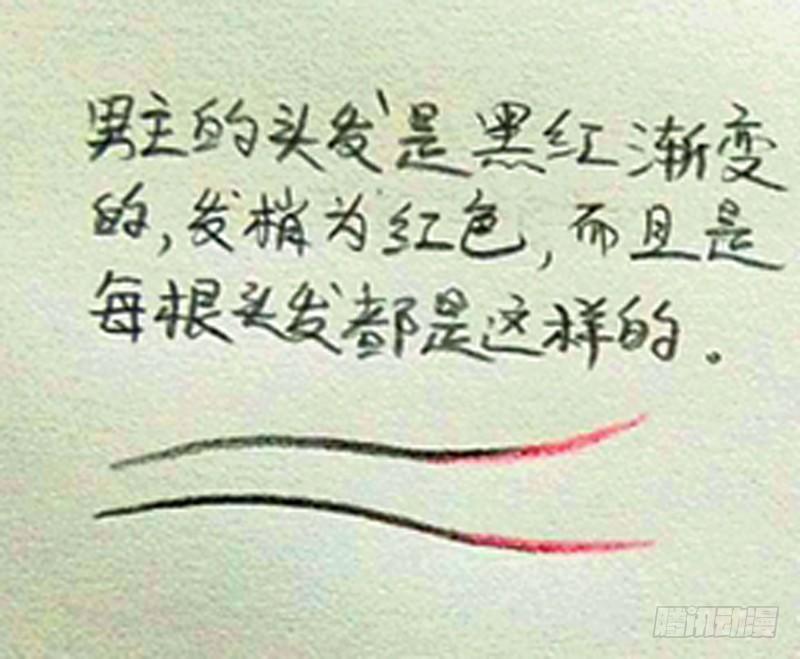 男主的头发是黑红渐变
的,发梢为红色,而且是
每根头发都是这样的。
腾讯动漫